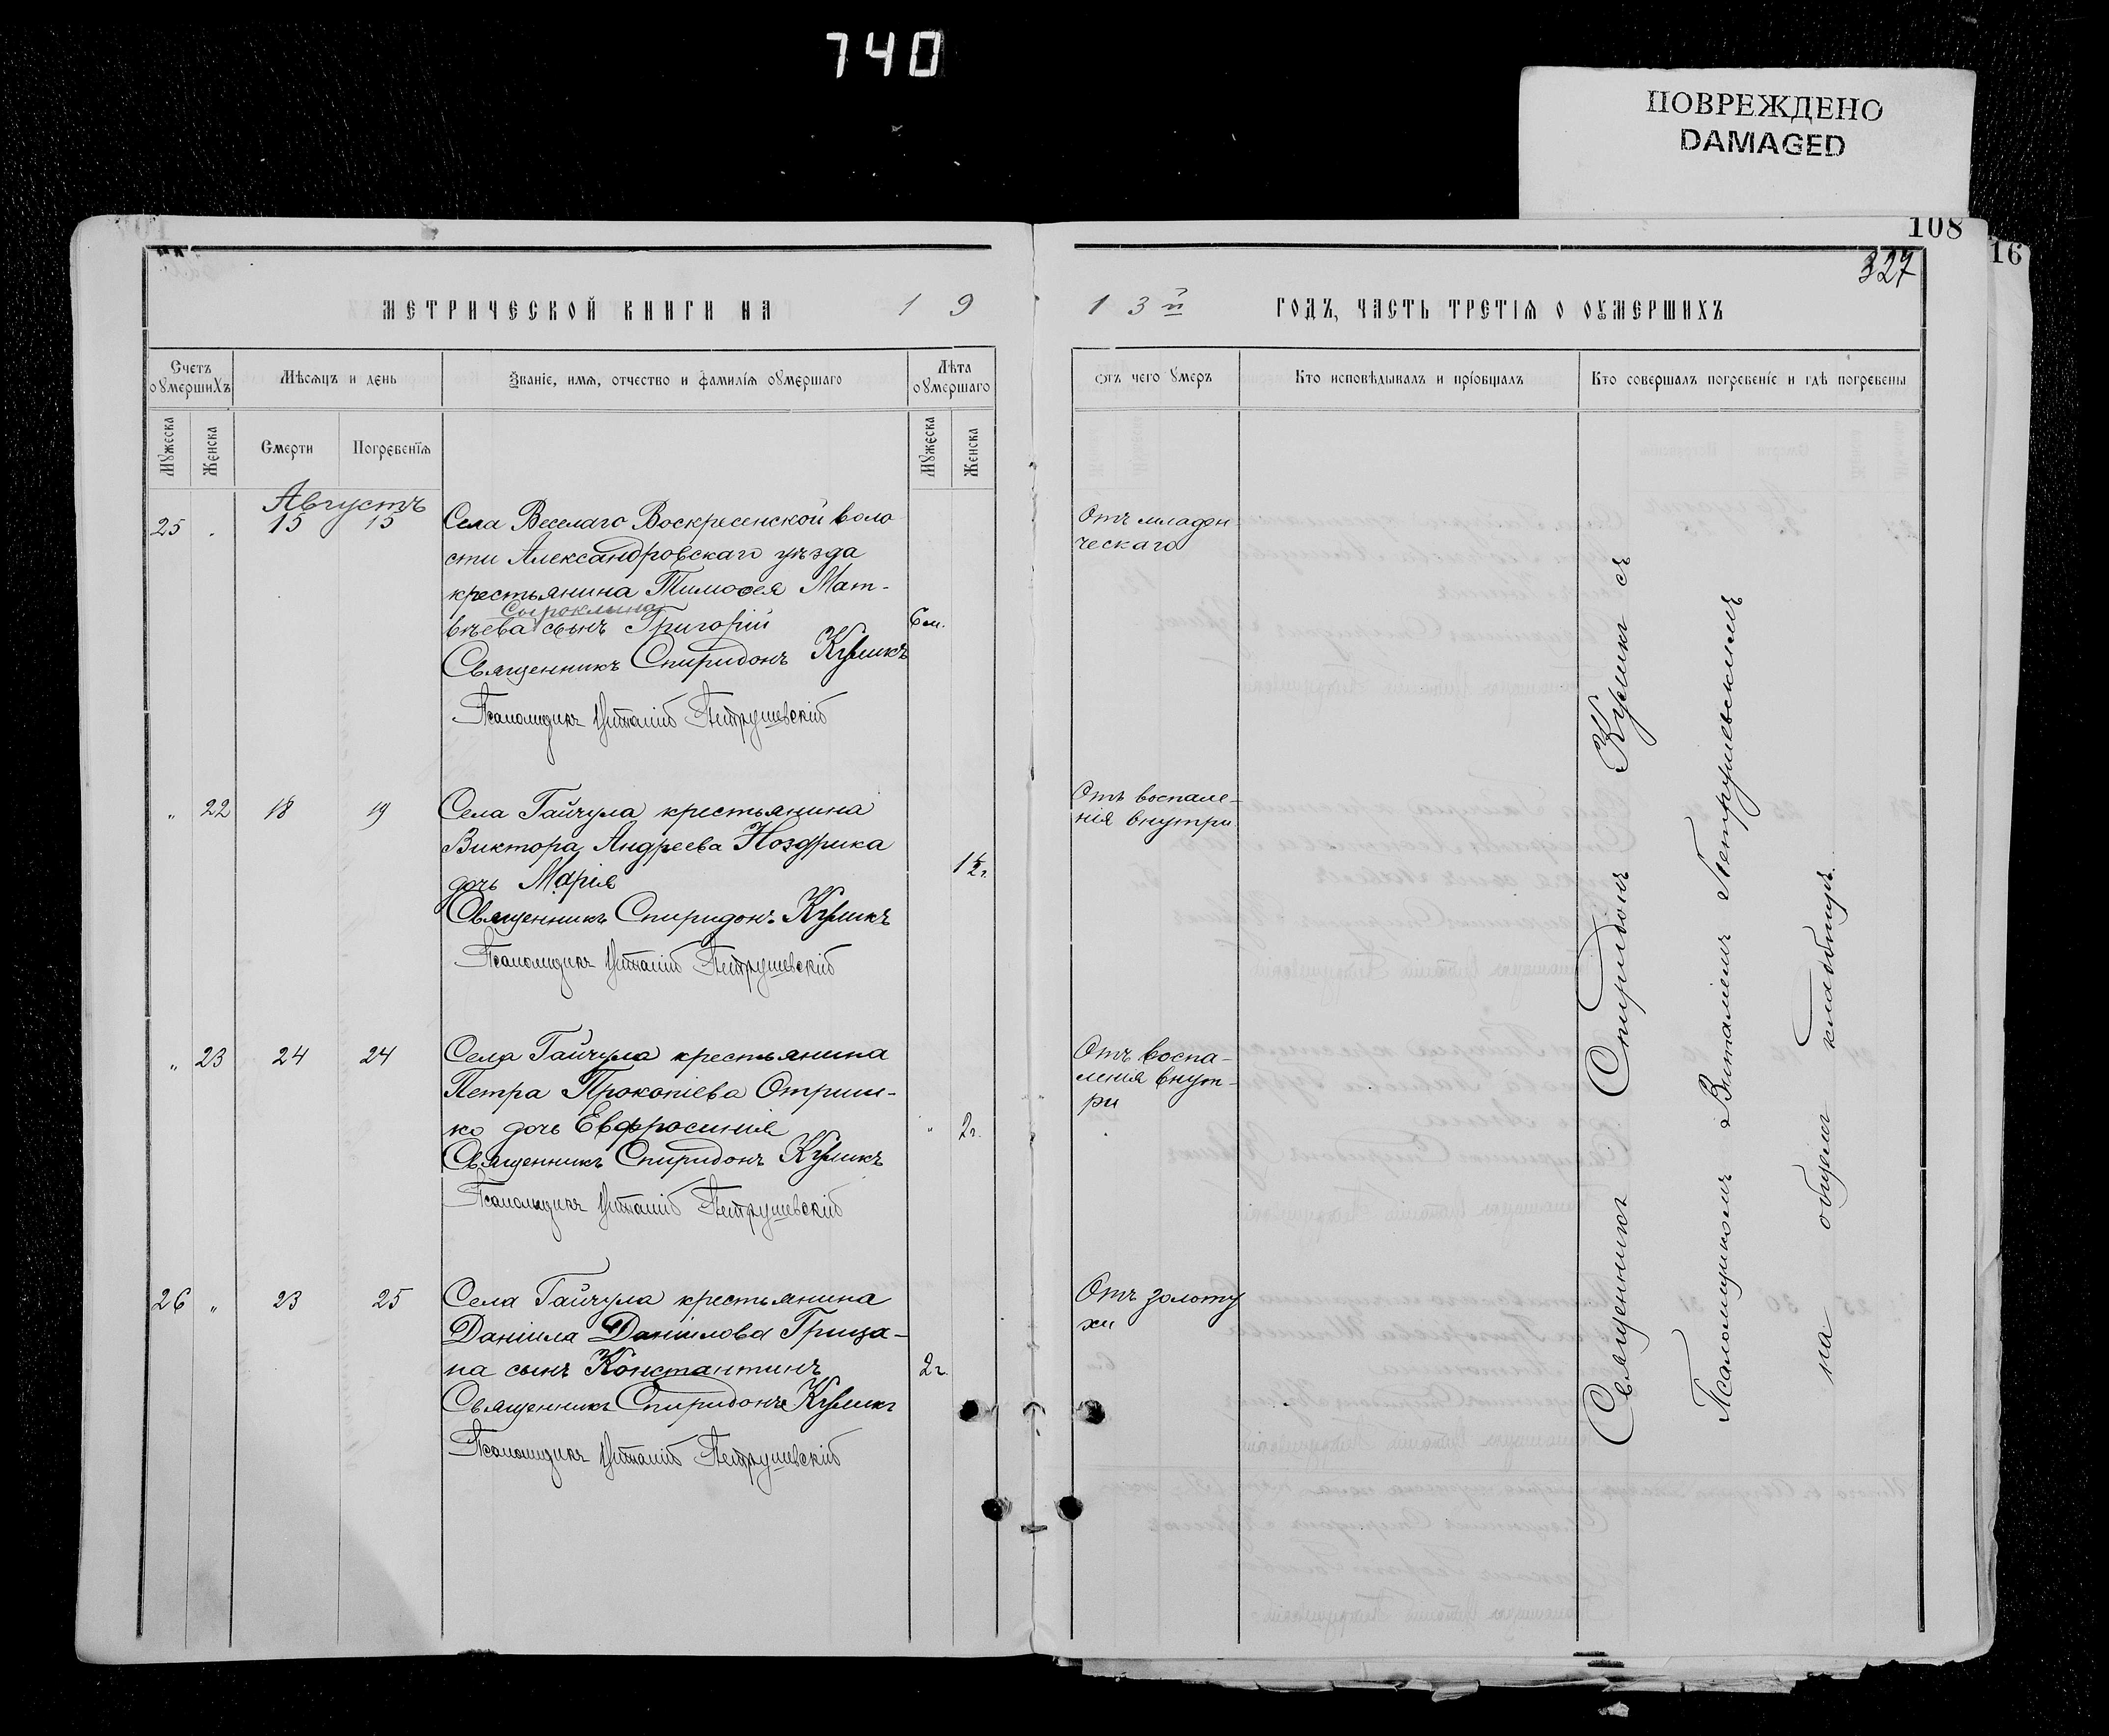 740
ПОВРЕЖДЕНО
DAMAGED
108
16
327
МЕТРИЧЕСКОЙ КНИГИ НА 19
13й ГОДЪ, ЧАСТЬ ТРЕТІѦ О ОУМЕРШИХЪ
Счетъ оумершихъ
Мѣсяцъ и день
Званіе, имя, отчество и фамилія оумершаго
Лѣта оумершаго
Отъ чего умеръ
Кто исповѣдывалъ и пріобщалъ
Кто совершалъ погребеніе и гдѣ погребены
Мужеска
Женска
Смерти
Погребенія
Мужеска
Женска
Августъ
25 15 15 Села Веселаго Воскресенской воло
сти Александровскаго уѣзда
крестьянина Тимофея Мат-
Сыроклина
вѣева сынъ Григорій 6 м.
Священникъ Спиридонъ Куликъ
Псаломщикъ Виталій Петрушевскій
Отъ младен
ческаго
" 22 18 19 Села Гайчула крестьянина
Виктора Андреева Ноздрика
дочь Марія 1½ г.
Священникъ Спиридонъ Куликъ
Псаломщикъ Виталій Петрушевскій
Отъ воспале-
нія внутри
" 23 24 24 Села Гайчула крестьянина
Петра Прокопіева Отриш-
ко дочь Евфросинія " 2 г.
Священникъ Спиридонъ Куликъ
Псаломщикъ Виталій Петрушевскій
Отъ воспа-
ленія внут-
ри
26 " 23 25 Села Гайчула крестьянина
Даніила Даніилова Грица-
на сынъ Константинъ 2 г.
Священникъ Спиридонъ Куликъ
Псаломщикъ Виталій Петрушевскій
Отъ золоту
хи
Священникъ Спиридонъ Куликъ съ
Псаломщикомъ Виталіемъ Петрушевскимъ
на общемъ кладбищѣ.